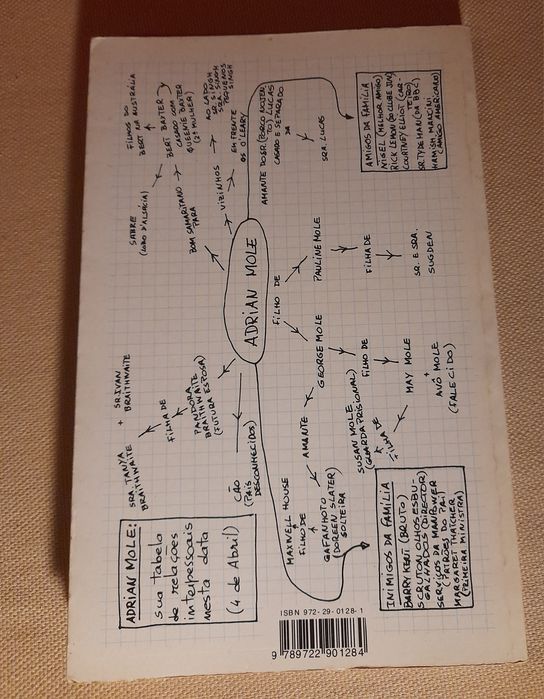 ADRIAN MOLE:
sua tabela
de relações
interpessoais
nesta data
(4 de Abril)
SRA TANYA
BRAITHWAITE
+
SR IVAN
BRAITHWAITE
FILHA DE
PANDORA
BRAITHWAITE
(FUTURA ESPOSA)
CÃO
(PAIS
DESCONHECIDOS)
SABRE
(LOBO D'ALSÁCIA)
FILHO DO
BERT NA AUSTRÁLIA
BERT BAXTER
CASADO COM
QUEENIE BAXTER
(2ª MULHER)
BOM SAMARITANO
PARA
VIZINHOS
AO LADO
SR. SINGH
SRA. SINGH
PEQUENOS
SINGH
EM FRENTE
OS O'LEARY
ADRIAN MOLE
FILHO DE
GEORGE MOLE
PAULINE MOLE
AMANTE DO SR. (PORCO NOJEN
TO) LUCAS
CASADO E SEPARADO
DA
SRA. LUCAS
MAXWELL HOUSE
FILHO DE
GAFANHOTO
(DOREEN SLATER)
SOLTEIRA
AMANTE
SUSAN MOLE
(GUARDA PRISIONAL)
FILHA DE
FILHO DE
MAY MOLE
+
AVÔ MOLE
(FALECIDO)
FILHA DE
SR. E SRA.
SUGDEN
AMIGOS DA FAMÍLIA
NIGEL (MELHOR AMIGO)
RICK LEMON (DO CLUBE JUN)
COURTNEY ELLIOT (CAR-
TEIRO)
SR TYDEMAN (DA BBC)
HAMISH MANCINI
(AMIGO AMERICANO)
INIMIGOS DA FAMÍLIA
BARRY KENT (BRUTO)
SCRUTON, OLHOS ESBU-
GALHADOS (DIRECTOR)
SERVIÇOS DA MANPOWER
(PATRÕES DO PAI)
MARGARET THATCHER
(PRIMEIRA MINISTRA)
ISBN 972-29-0128-1
9 789722 901284